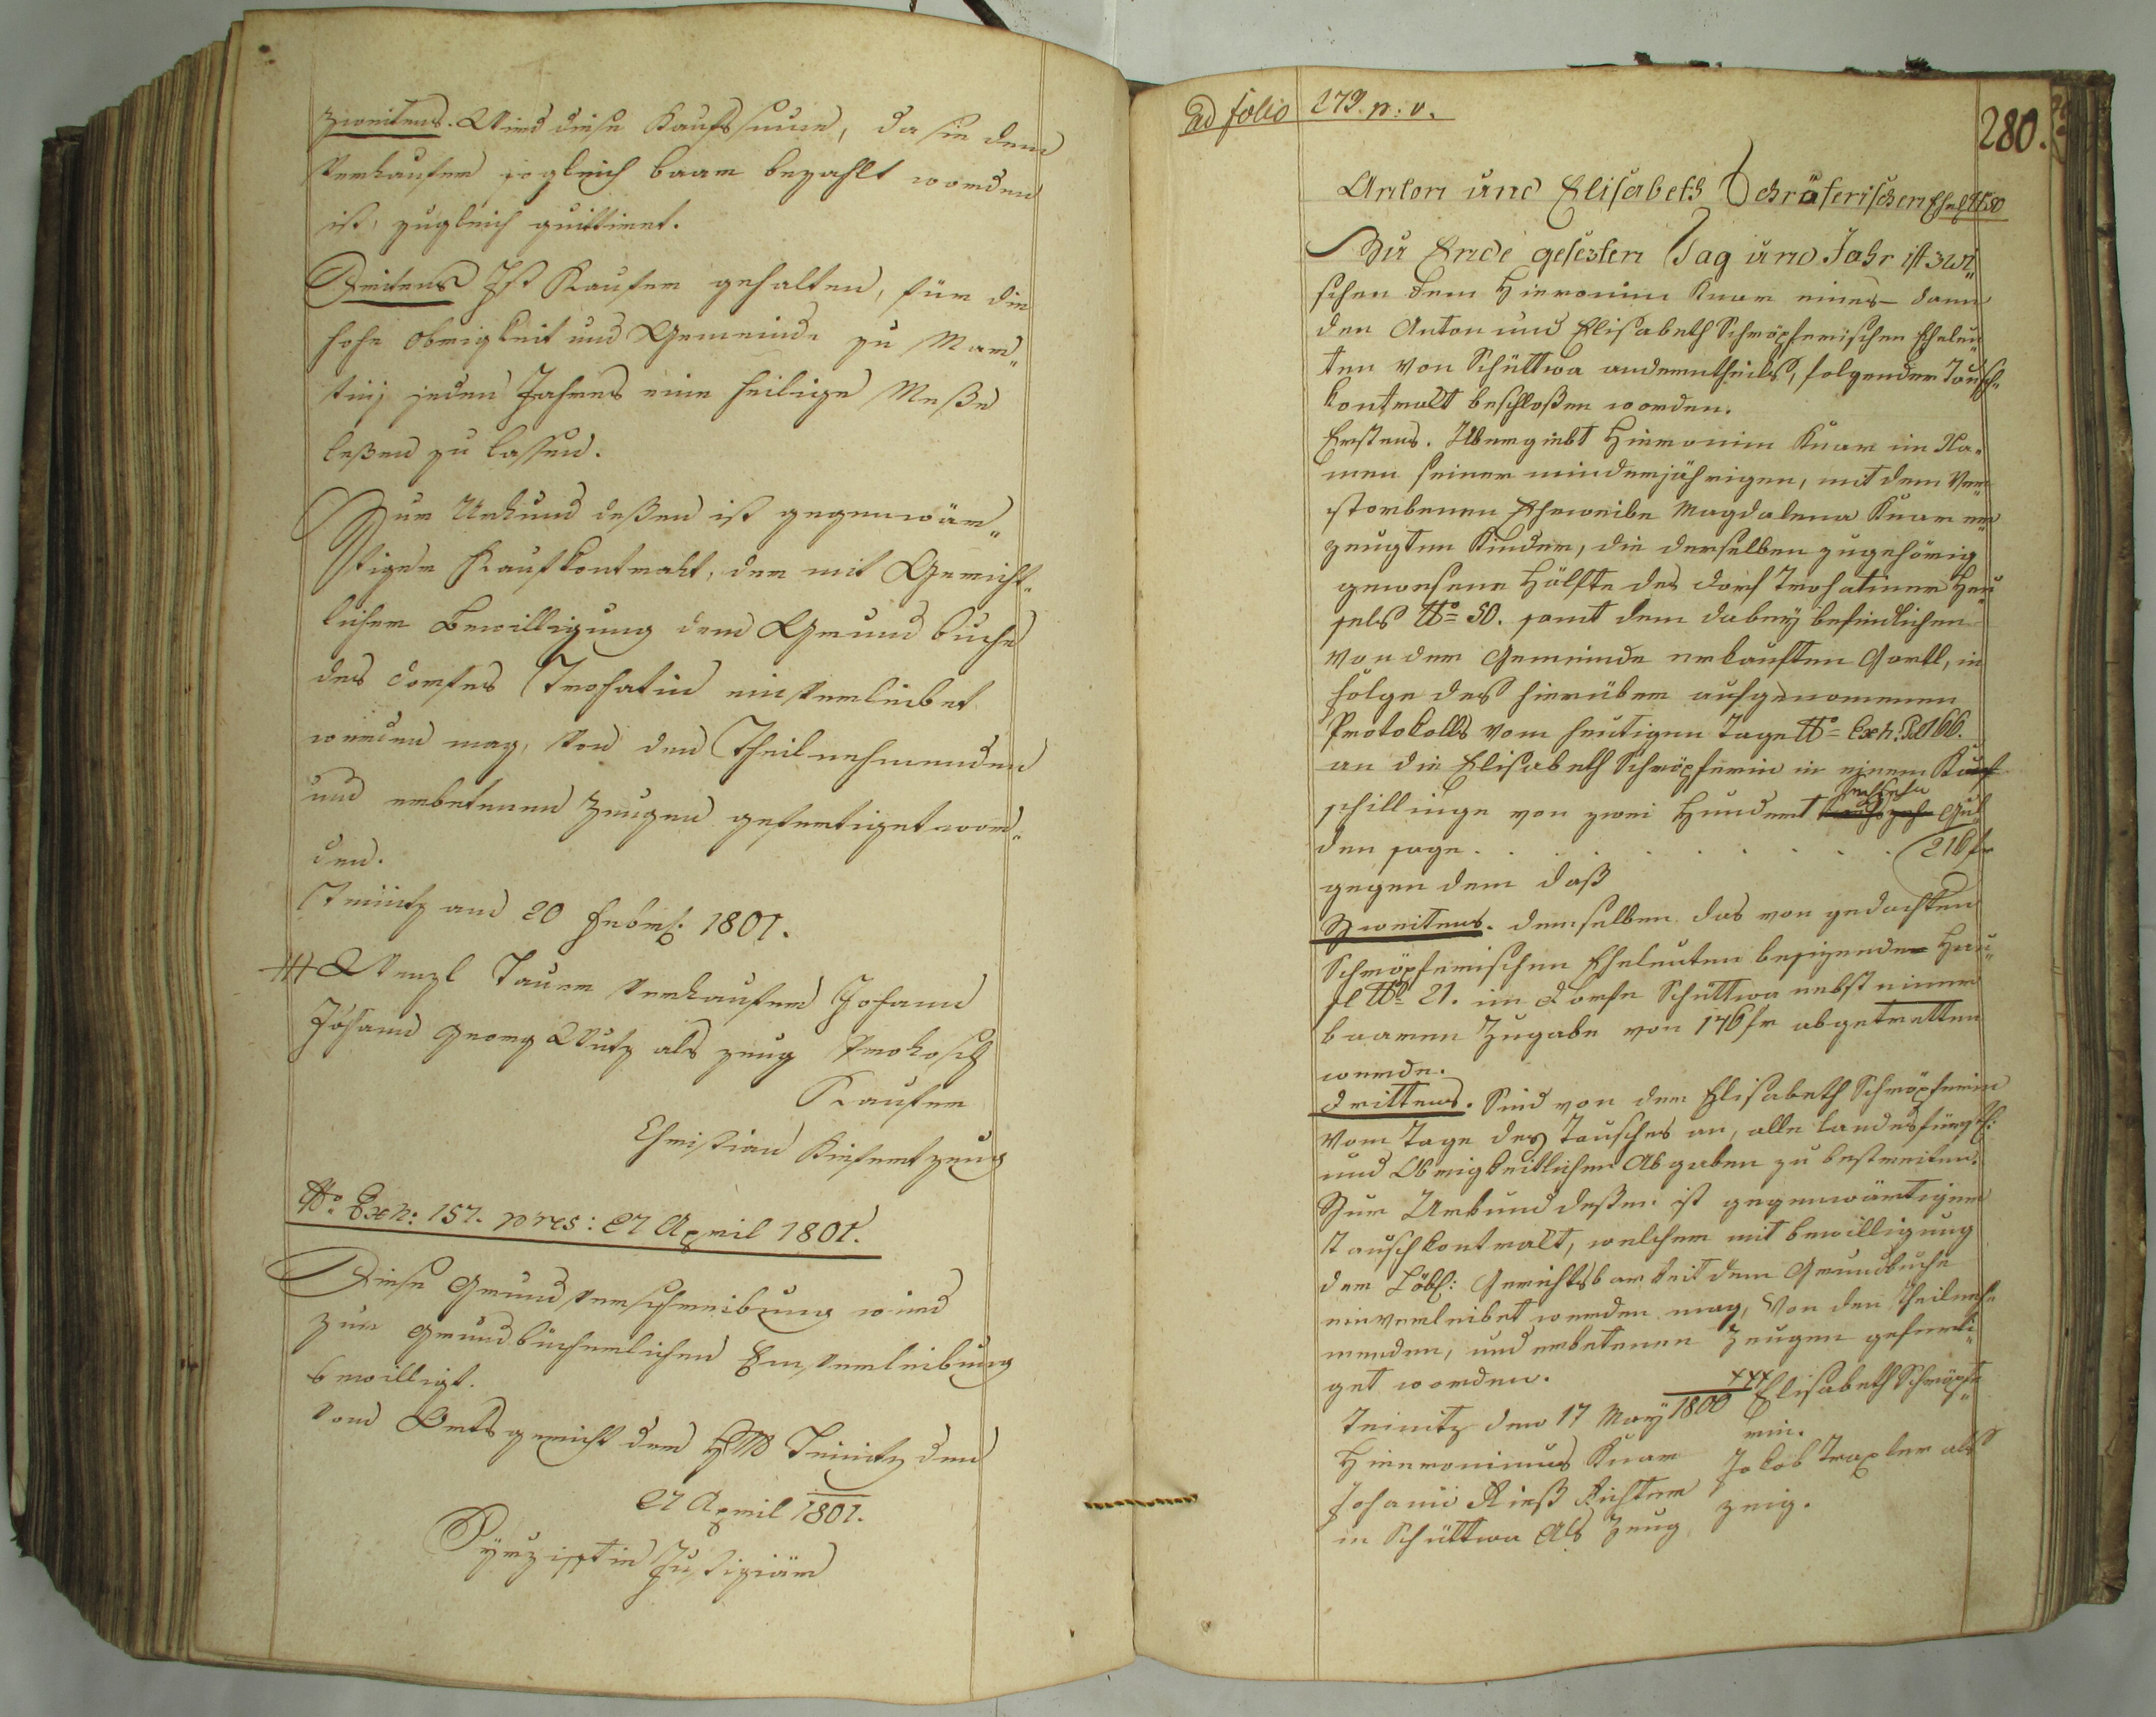 Zweitens. Wird diese Kaufssume, da sie dem
Verkaufer sogleich baar bezahlt worden
ist, zugleich quittiert.
Drittens Ist Kaufer gehalten, für die
hohe Obrigkeit und Gemeinde zu Mar„
tini jeden Jahres eine heilige Meße
leßen zu lassen.
Zur Urkund deßen ist gegenwär„
tiger Kaufkontrakt, der mit Gericht„
licher Bewilligung dem Grundbuche
des Dorfes Trohatin einverleibet
werden mag, von den Theilnehmenden
und erbetenen Zeugen gefertiget wor„
den.
Teinitz am 20 Febr: 1801.
+++ Wenzl Bauer Verkaufer Johann
Johann Georg Wutz als zeug Prokosch
Kaufer
Christian Kiefert zeug
No Exh: 157. pres: 27 April 1801.
Diese Grundverschreibung wird
zur Grundbücherlichen Einverleibung
bewilligt.
Vom Ortsgericht der Hft Teinitz den
27 April 1801.
Justiziär
Ad folio 279. p: v.
280.
Anton und Elisabeth Schröferischen Ehel
Zu Ende gesezten Tag und Jahr ist zwi„
schen dem Hieronim Knar eines – dann
den Anton und Elisabeth Schröpferischen Eheleu„
ten von Schüttwa anderntheils, folgender Tausch„
kontrakt beschloßen worden.
Erstens. Übergiebt Hieronim Knar im Na„
men seiner minderjährigen, mit dem Ver„
storbenen Eheweibe Magdalena Knar er„
zeugten Kinder, die derselben zugehörig
gewesene Hälfte des Dorf Trohatiner Häu„
sels No 50. samt dem dabey befindlichen
von der Gemeinde erkauften Gartl, in
folge des hierüber aufgenommenen
Protokolls vom heutigen Tage No Exh. 166.
an die Elisabeth Schröpferin in einem Kauf
schillinge von zwei Hundert sechzehn Gul
den sage . . . . . . . . . . 216 fr
gegen dem daß
Zweitens. demselben das von gedachten
Schröpferischen Eheleuten besizende Häu„
sl No 21. im Dorfe Schüttwa nebst einer
baaren Zugabe von 146 fr abgetretten
werde.
Drittens. Sind von der Elisabeth Schröpferin
vom Tage des Tausches an, alle landesfürstl:
und Obrigkeitlichen Abgaben zu bestreiten.
Zur Urkund deßen ist gegenwärtiger
Tauschkontrakt, welcher mit Bewilligung
der Löbl: Gerichtsbarkeit dem Grundbuche
einverleibet werden mag, von den Theilneh„
menden, und erbetenen Zeugen geferti„
get worden.
Teinitz den 17 May 1800 xxx Elisabeth Schröpfe„
rin.
Hieronimus Knar Jakob Traxler als
Johann Rieß Richter zeig.
in Schüttwa Als Zeug